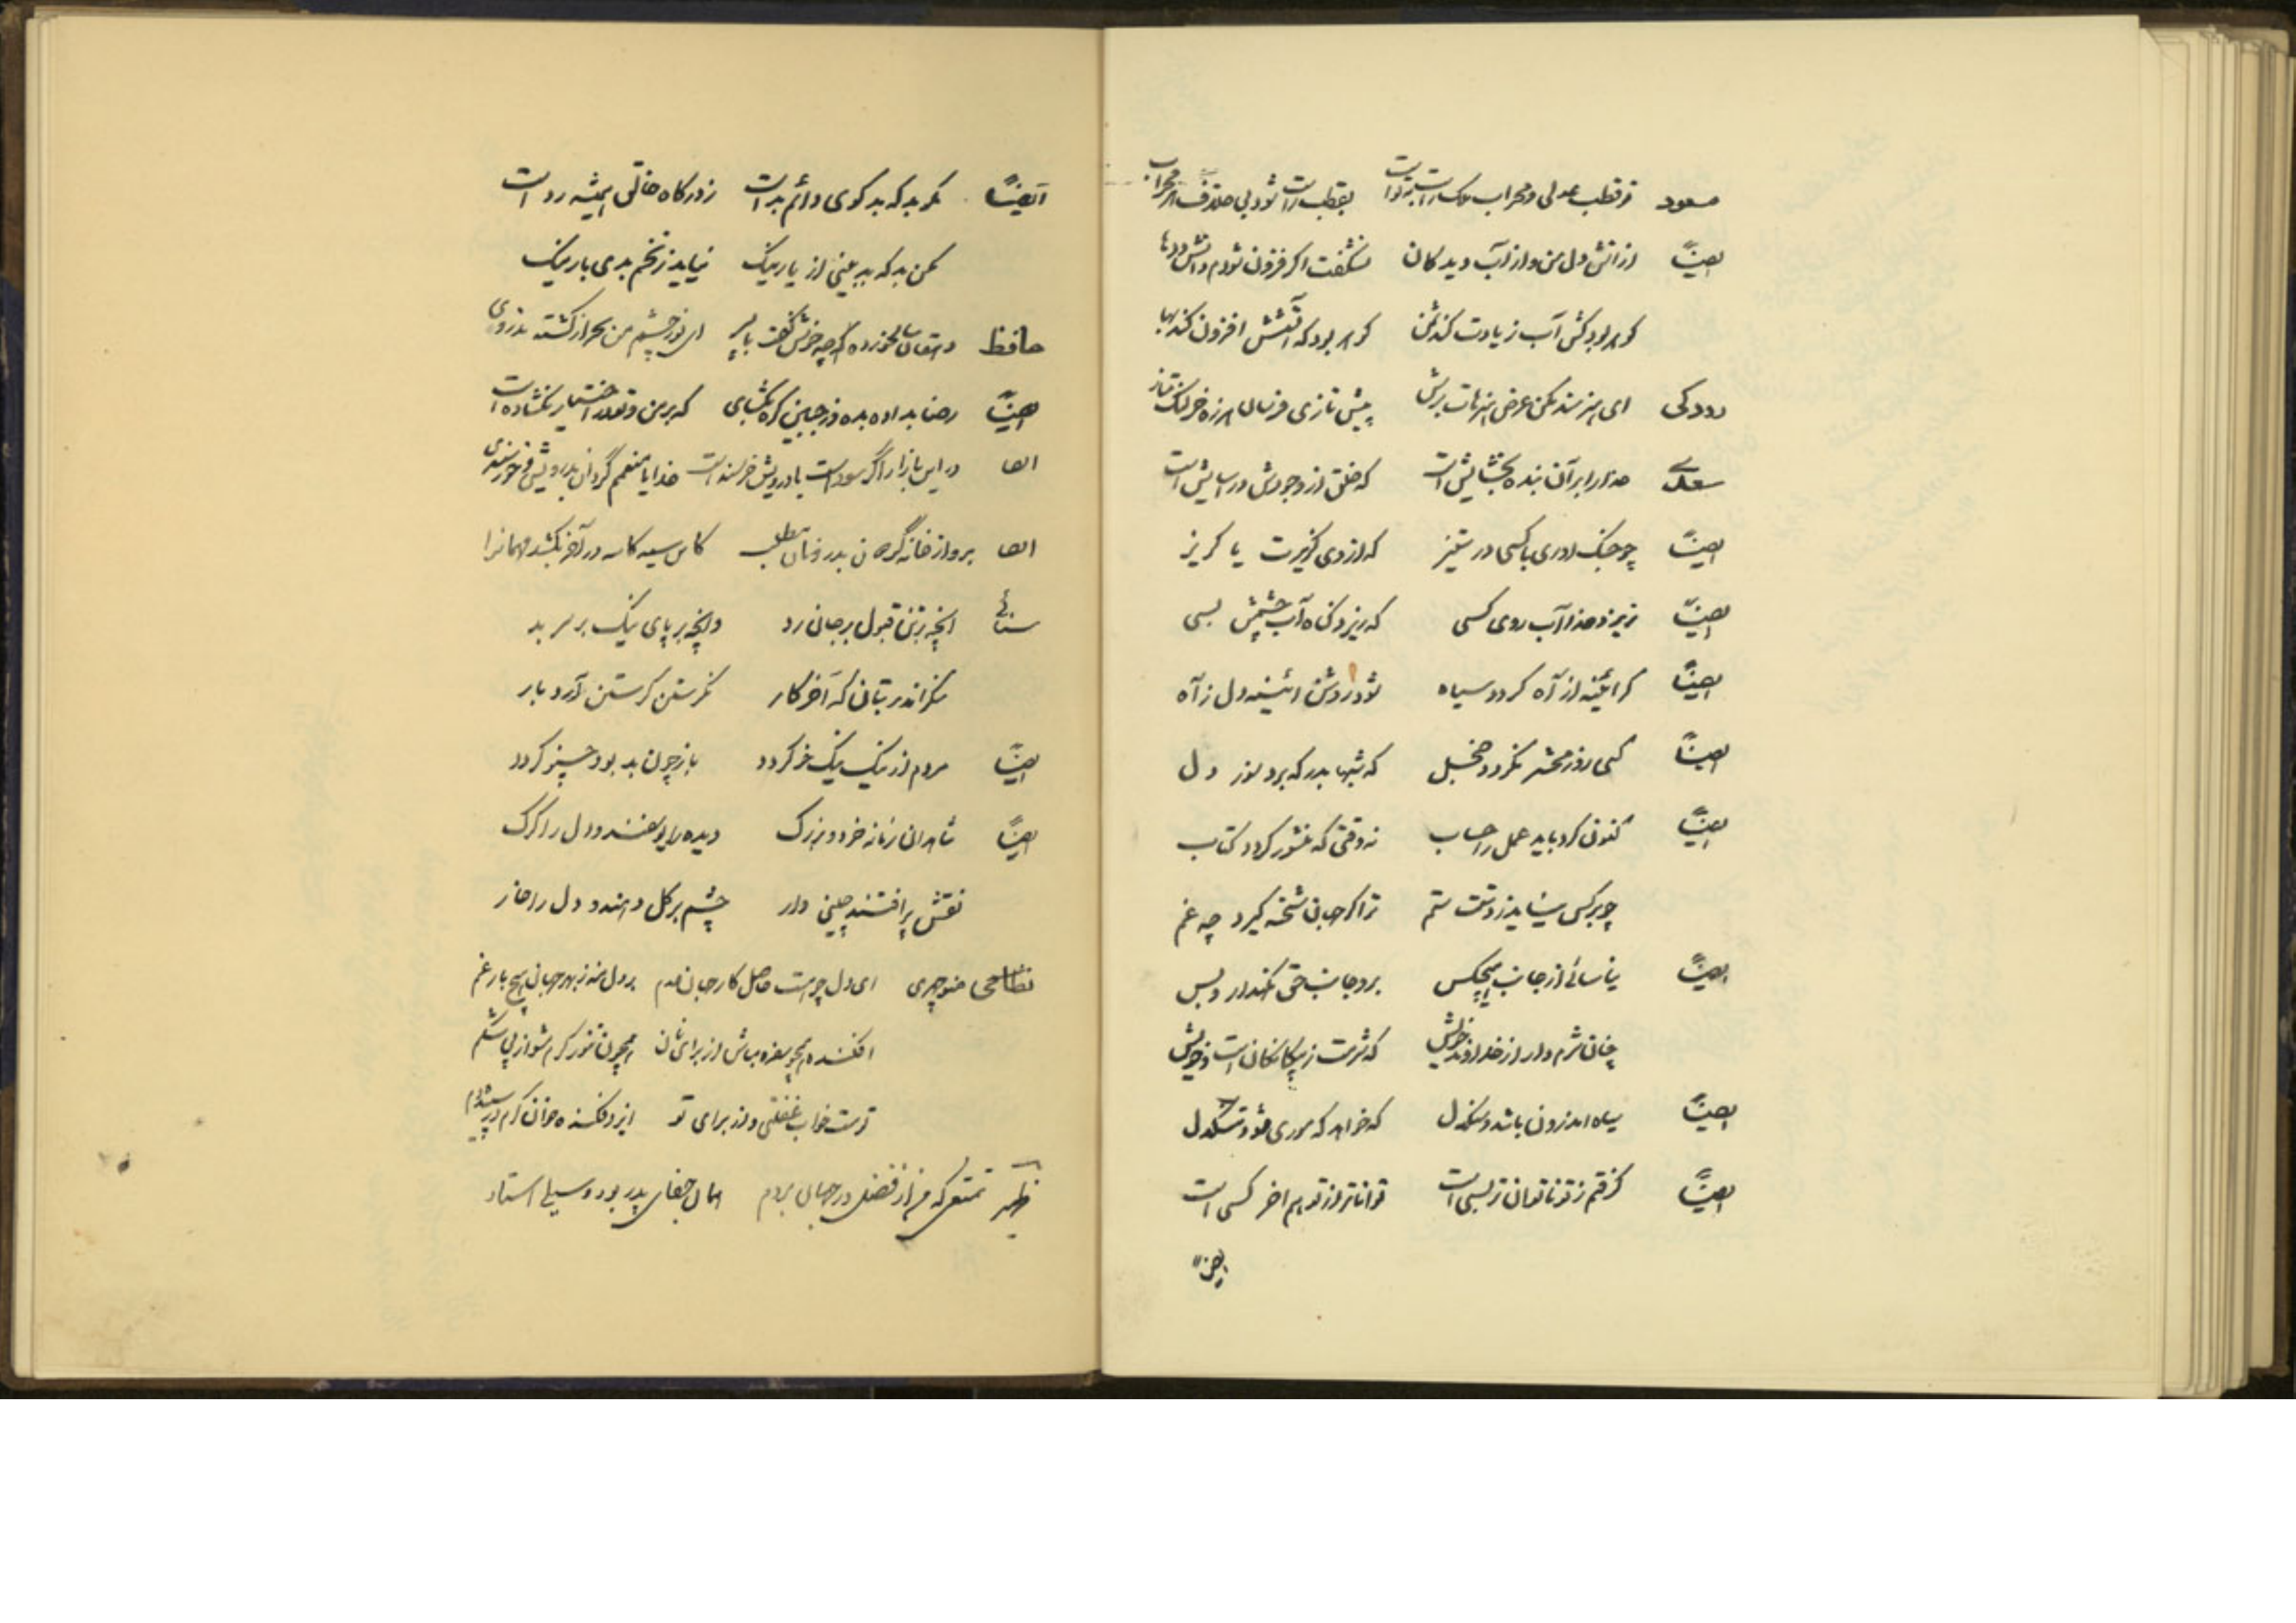 مسعود تو قطب عدلی و محراب ملک راست بتو است بقطب راست شود بی خلاف هر محراب
ایضاً از آتش دل من و از آب دیدگان نشگفت اگر فزون شودم دانش و دها
گوهر بود کش آب زیادت کند ثمن گوهر بود که آتشش افزون کند بها
رودکی ای هنرمند مکن عرض هنرهات برش پیش تازی فرسان هرزه خر لنگ متاز
سعدی خدا را بر آن بنده بخشایش است که خلق از وجودش در آسایش است
ایضاً چو جنگ اوری با کسی در ستیز که از وی گزیرت یا گریز
ایضاً نریزد خدا آب روی کسی که ریزد گناه آب چشمش بسی
ایضاً گر آئینه از آه گردد سیاه شود روشن ائینه دل ز آه
ایضاً کسی روز محشر نگردد خجل که شبها بدرگه برد سوز دل
ایضاً کنون کرد باید عمل را حساب نه وقتی که منشور گردد کتاب
چو بر کس نیاید ز دستت ستم ترا گر جهان شحنه گیرد چه غم
ایضاً نیاسائی از جانب هیچکس برو جانب حق نگهدار و بس
چنان شرم دار از خداوند خویش که شرمت ز بیگانگان است و خویش
ایضاً سیاه اندرون باشد و سنگدل که خواهد که موری شود تنگدل
ایضاً گرفتم ز تو ناتوان تر بسی است تواناتر از تو هم اخر کسی است
ایضاً
ایضاً مگو بد که بدگوی دائم بد است ز درگاه خالق همیشه رد است
مکن بد که بد بینی از یار نیک نیاید ز تخم بدی بار نیک
حافظ دهقان سالخورده چه خوش گفت با پسر ای نور چشم من بجز از کشته ندروی
ایضاً رضا بداده بده وز جبین گره بگشای که بر من و تو در اختیار نگشاده است
ایضا در این بازار اگر سودیست با درویش خرسند است خدایا منعمم گردان بدرویشی و خورسندی
ایضا برو از خانه گردون بدر و نان مطلب کاین سیه کاسه در آخر بکشد مهمانرا
سنائی انچه بر تن قبول بر جان رد وانچه بر پای نیک بر سر بد
منگر اندر بتان که آخر کار نگرستن گرستن آرد بار
ایضاً مردم از نیک نیک خو گردد باز چون بد بود چنو گردد
ایضاً شاهدان زمانه خرد و بزرگ دیده را یوسفند و دل را گرگ
نقش پر افتند چینی وار چشم بر گل دهند و دل را خار
نظامی منوچهری ای دل چو هست حاصل کار جهان عدم بر دل منه ز بهر جهان هیچ بار غم
افکنده همچو سفره مباش از برای نان همچون تنور گرم مشو از پی شکم
تو مست خواب غفلتی و از برای تو ایزد فکنده خوان کرم در سپیده دم
ظهیر تمتعی که من از فضل در جهان بردم همان جفای پدر بود و سیلی استاد